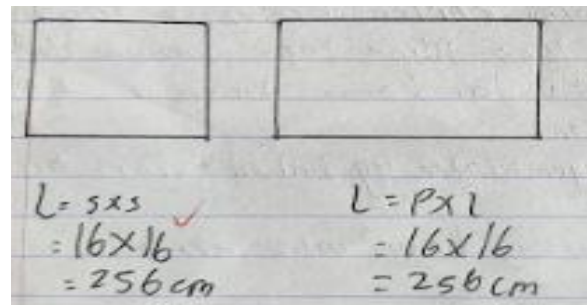 L = s x s
= 16 x 16
= 256 cm
L = P x l
= 16 x 16
= 256 cm